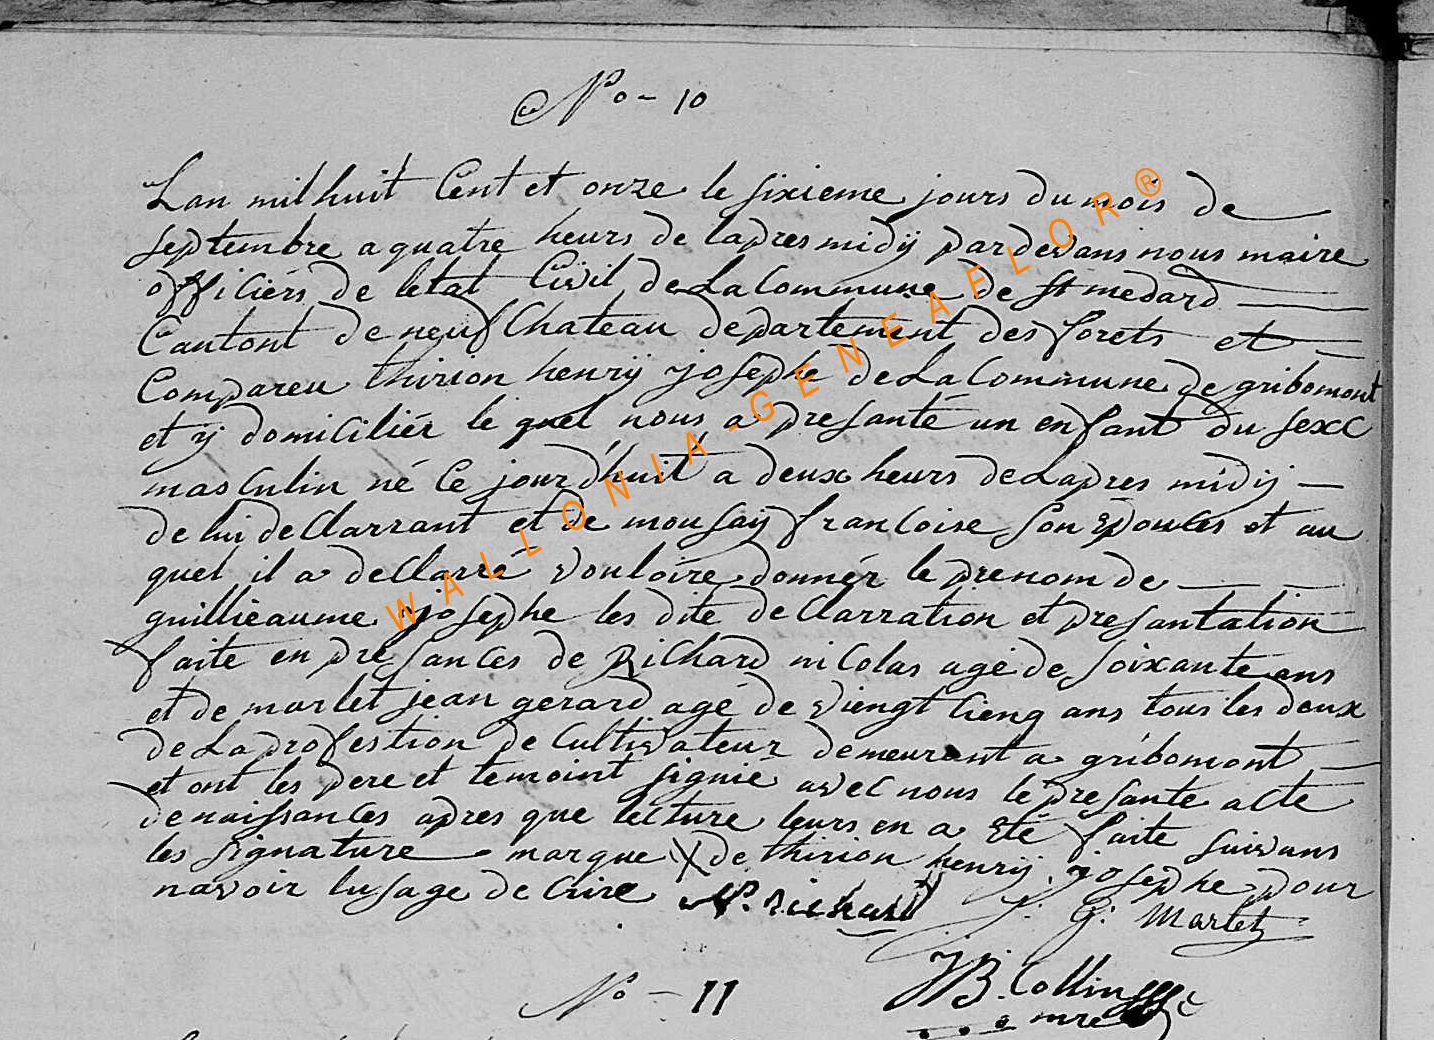 No - 10
Lan mil huit Cent et onze le sixieme jours du mois de
septembre a quatre heurs de lapres midÿ par devans nous maire
officiérs de letat Civil de La Commune de St medard
Cantont de neufChateau departement des forets et
Compareu thirion henrÿ josephe de La Commune de gribomont
et ÿ domiciliér le quel nous a presanté un enfant du sexe
masculin né Ce jour d'huit a deux heurs de Lapres midÿ
de lui deClarrant et de mousaÿ francoise son Epouces et au
quel il a deClarré vouloire donnér le prenom de
guillieaume josephe les dite deClarration et presantation
faite en presances de Richard nicolas agé de soixante ans
et de marlet jean gerard agé de viengt Cienq ans tous les deux
de La profestion de Cultivateur demeurant a gribomont
et ont les pere et temoint signié avec nous le presante acte
de naissances apres que lecture leurs en a Eté faite suivans
les signature marque X de thirion henrÿ josephe pour
navoir lusage decrire N. Richard J: G: Marlet
JB. Collin
mre
No - 11
WALLONIA-GENEAFLOR®